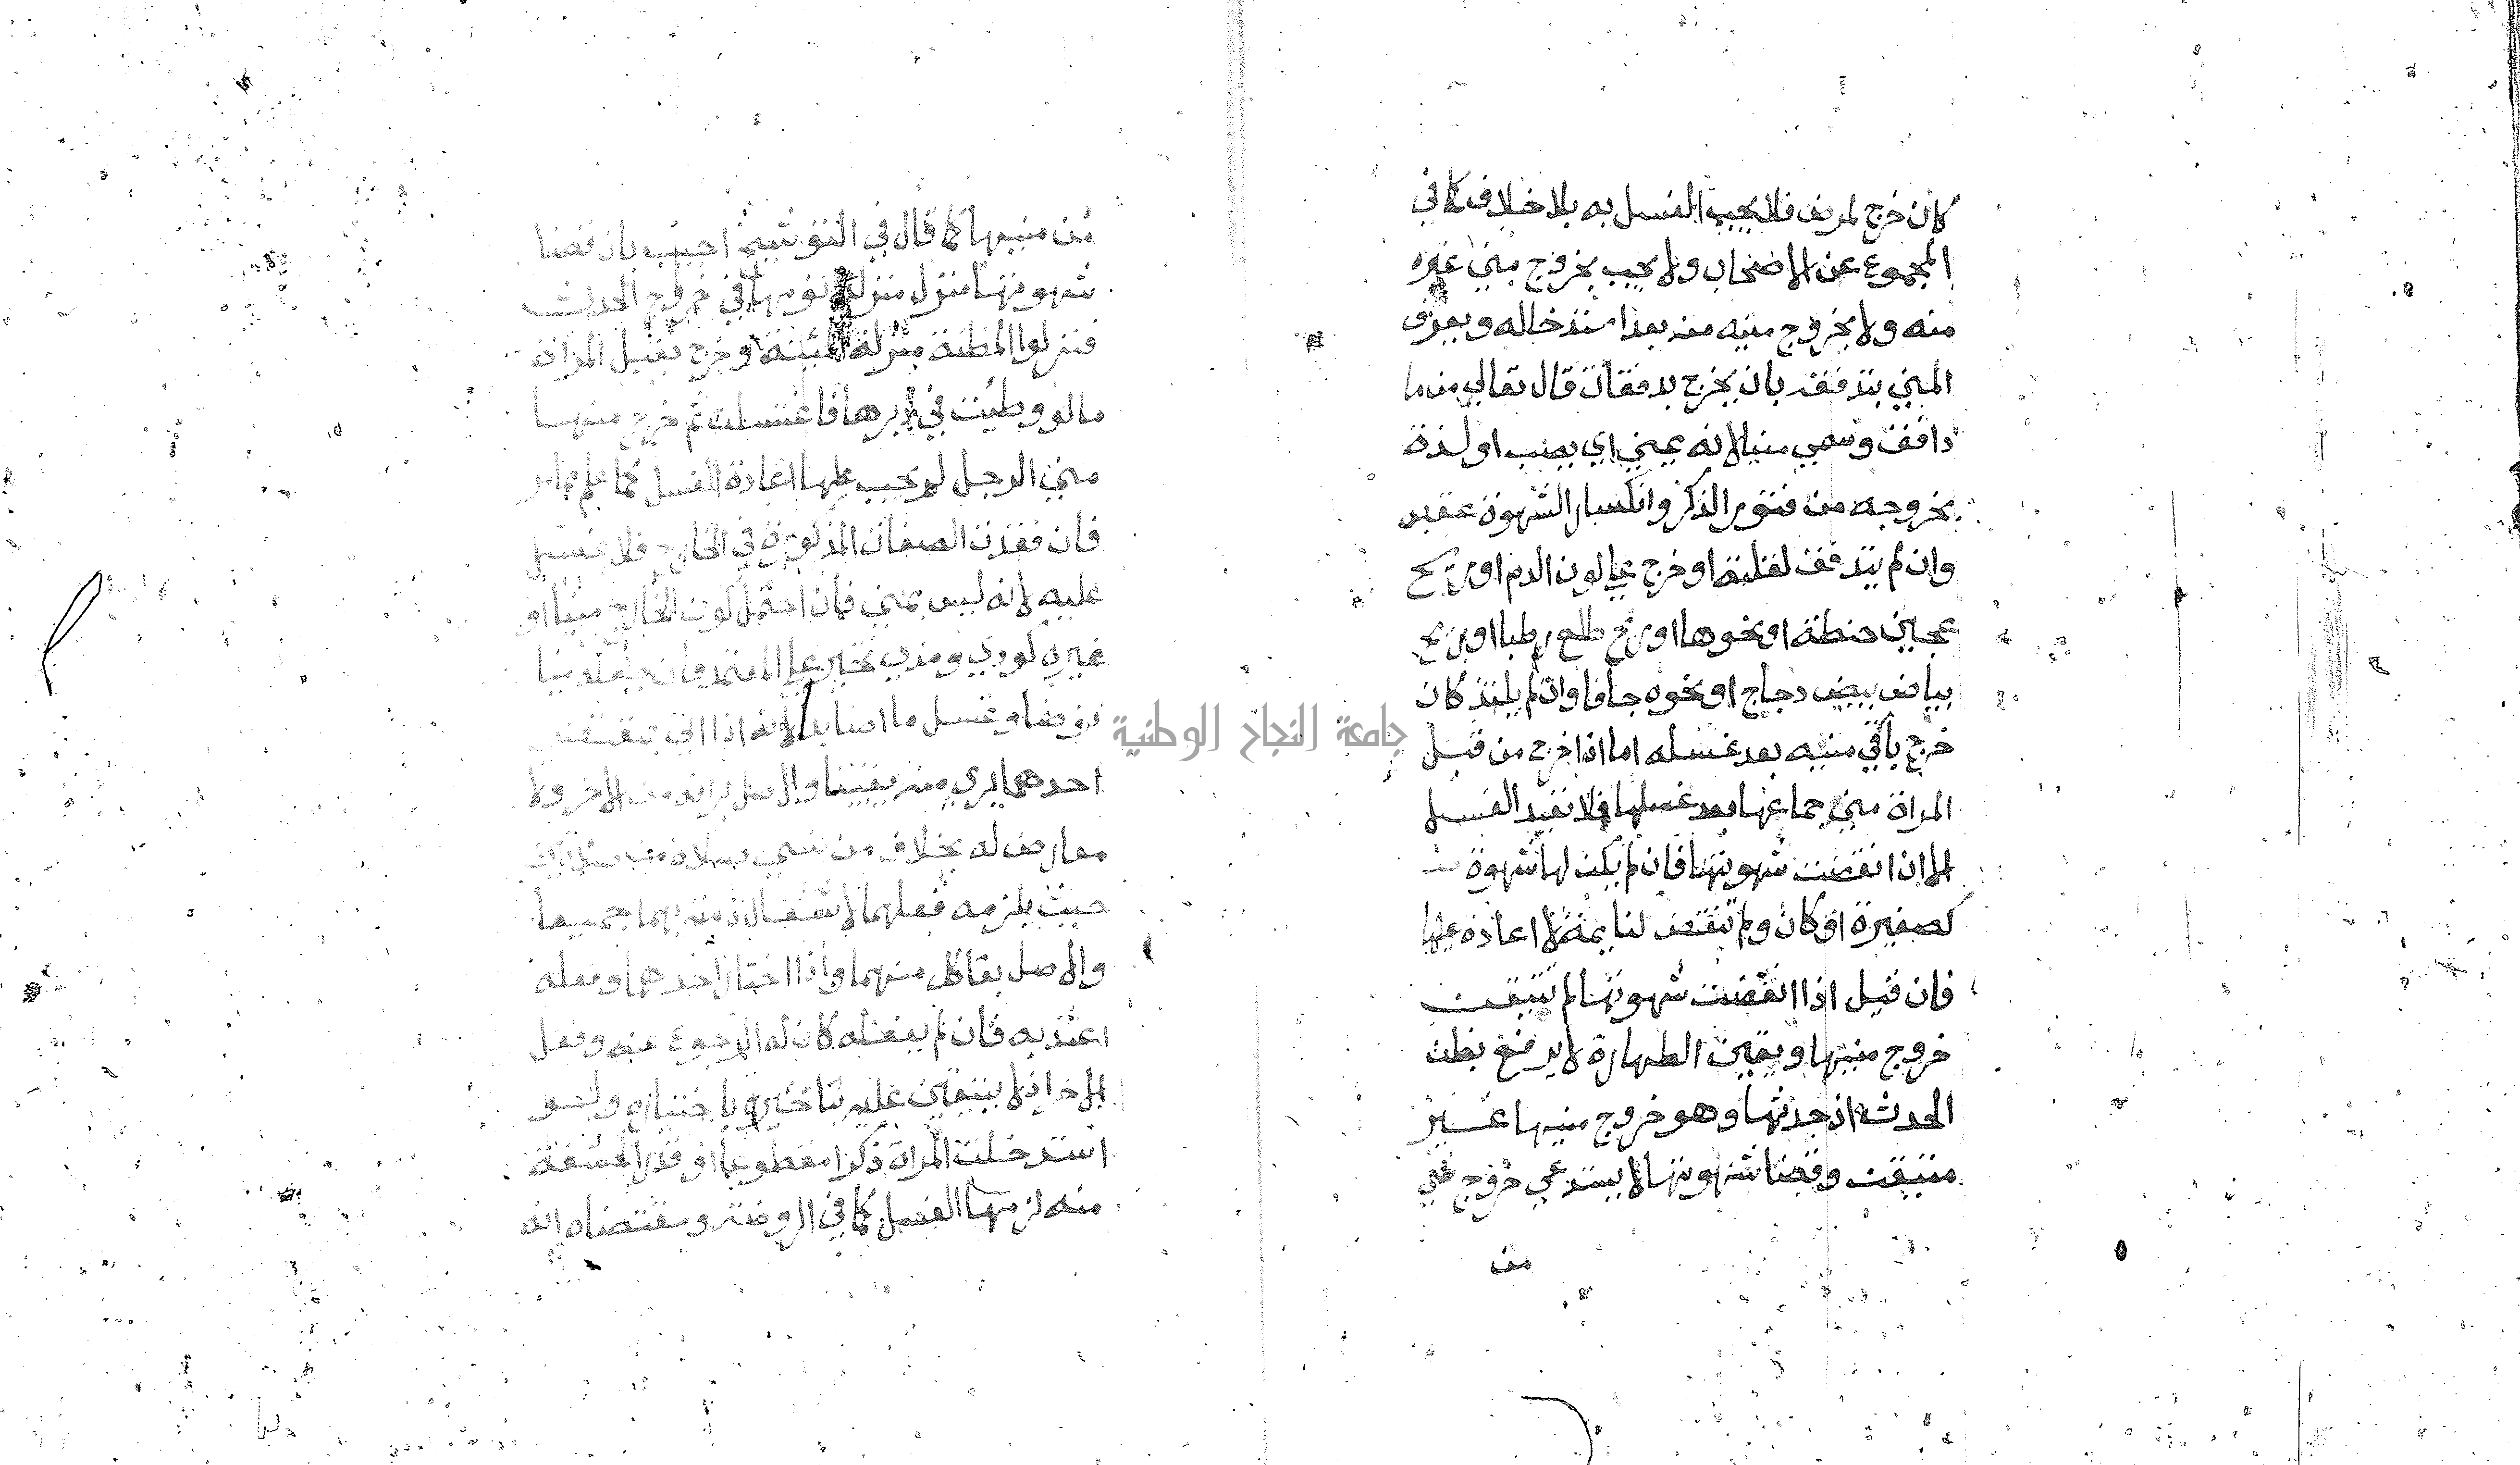 كان خرج لمرض فلا يجب الغسل به بلا خلاف كما في
المجموع عن الاصحاب ولا يجب بخروج مني غيره
منه ولا بخروج منيه منه بعد استدخاله ويعرف
المني بتدفقه بان يخرج بدفقات قال تعالى من ما
دافق وسمي منيا لانه يمني اي يصب او لذة
بخروجه من فتور الذكر وانكسار الشهوة عقبه
وان لم يتدفق لقلته او خرج علي لون الدم او ريح
عجين حنطة او نحوها او ريح طلع رطبا او ريح
بياض بيض دجاج او نحوه جافا وان لم يلتذ كان
خرج باقي منيه بعد غسله اما اذا خرج من قبل
المراة مني جماعها بعد غسلها فلا تعيد الغسل
الا ان انقضت شهوتها فان لم يكن لها شهوة
كصغيرة او كان ولم تنقض كنايمة لا اعادة عليها
فان قيل اذا انقضت شهوتها لم تتيقن
خروج منيها ويقين الطهارة لا يرفع بظن
الحدث اذ حدثها وهو خروج منيها غير
متيقن وقضا شهوتها لا يستدعي خروج شي
من
من منيها كما قال في التوشيح اجيب بان قضا
شهوتها منزل منزلة نومها في خروج الحدث
فنزلوا المظنة منزلة المئنة وخرج بقبل المراة
ما لو وطئت في دبرها فاغتسلت ثم خرج منها
مني الرجل لم يجب عليها اعادة الغسل كما علم مما مر
فان فقدت الصفات المذكورة في الخارج فلا غسل
عليه لانه ليس بمني فان احتمل كون الخارج منيا او
غيره كودي ومذي تخير علي المعتمد فان جعله منيا
توضا وغسل ما اصابه لانه اذا اتي بمقتضى
احدهما بري منه يقينا والاصل براته من الاخر ولا
معارض له بخلاف من نسي صلاة من صلاتين
حيث يلزمه فعلهما لاشتغال ذمته بهما جميعا
والاصل بقا كل منهما واذا اختار احدهما وفعله
اعتد به فان لم يفعله كان له الرجوع عنه وفعل
الاخر اذ لا يتعين عليه باختياره ولو
استدخلت المراة ذكرا مقطوعا او قدر الحشفة
منه لزمها الغسل كما في الروضة ومقتضاه انه
جامعة النجاح الوطنية